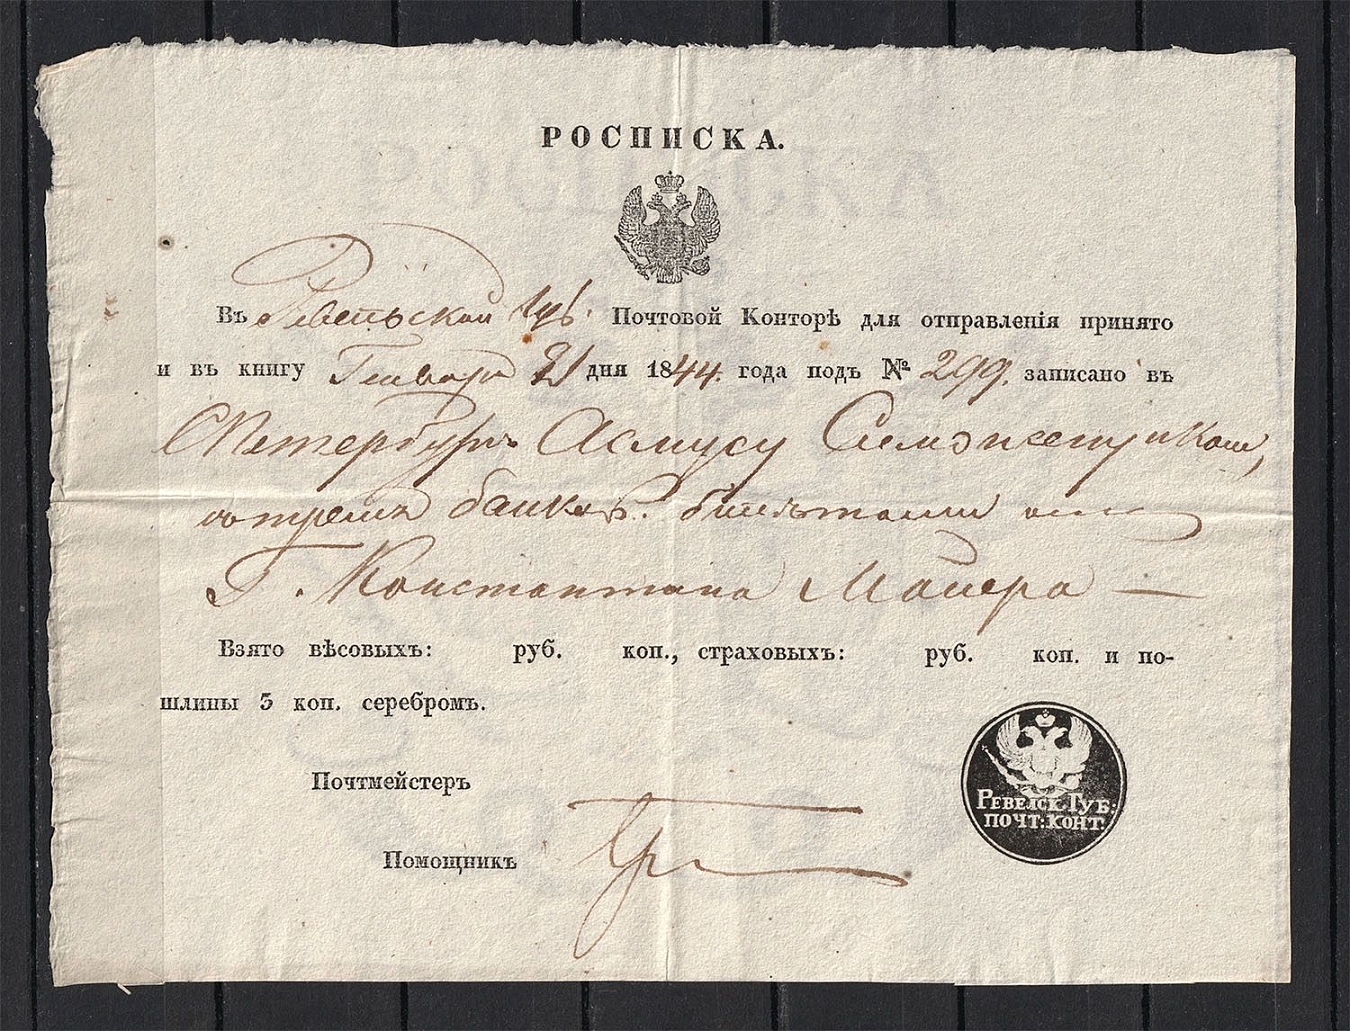 РОСПИСКА.
Въ Ревельской Губ. Почтовой Конторѣ для отправленія принято
и въ книгу Генваря 21 дня 1844. года подъ № 299. записано въ
СПетербургъ Асмусу Симонсену и Комп,
съ тремя банков. билетами
Г. Константина Майера —
Взято вѣсовыхъ: руб. коп., страховыхъ: руб. коп. и по-
шлины 3 коп. серебромъ.
Почтмейстеръ
Помощникъ
РЕВЕЛСК. ГУБ:
ПОЧТ: КОНТ.